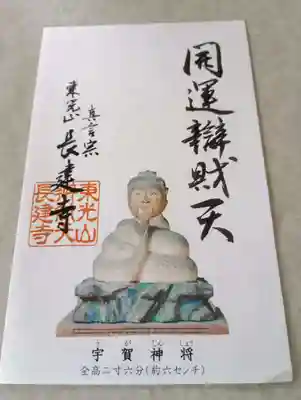 開運辯財天
真言宗
東光山
長建寺
東光山
長建寺
宇賀神将
うがじんしょう
全高二寸六分(約六センチ)